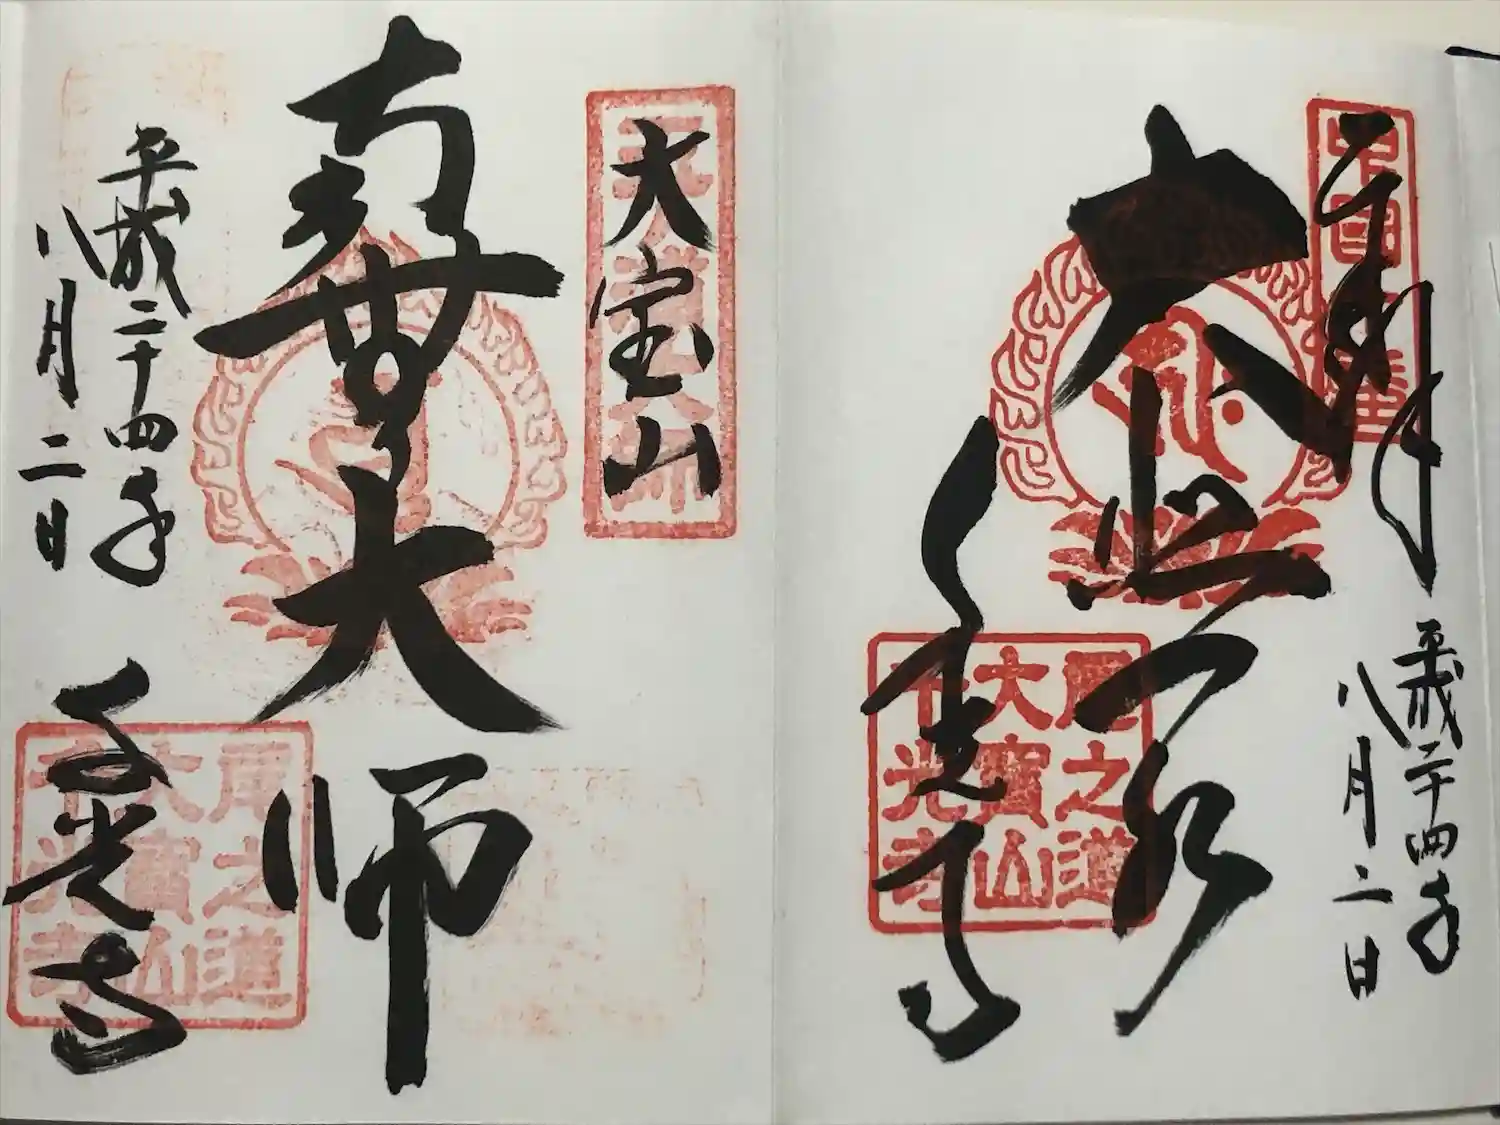 奉拝
平成二十四年
八月二日
大悲殿
千光寺
中国一番
尾之道
大寶山
千光寺
大宝山
南無大師
平成二十四年
八月二日
千光寺
尾之道
大寶山
千光寺